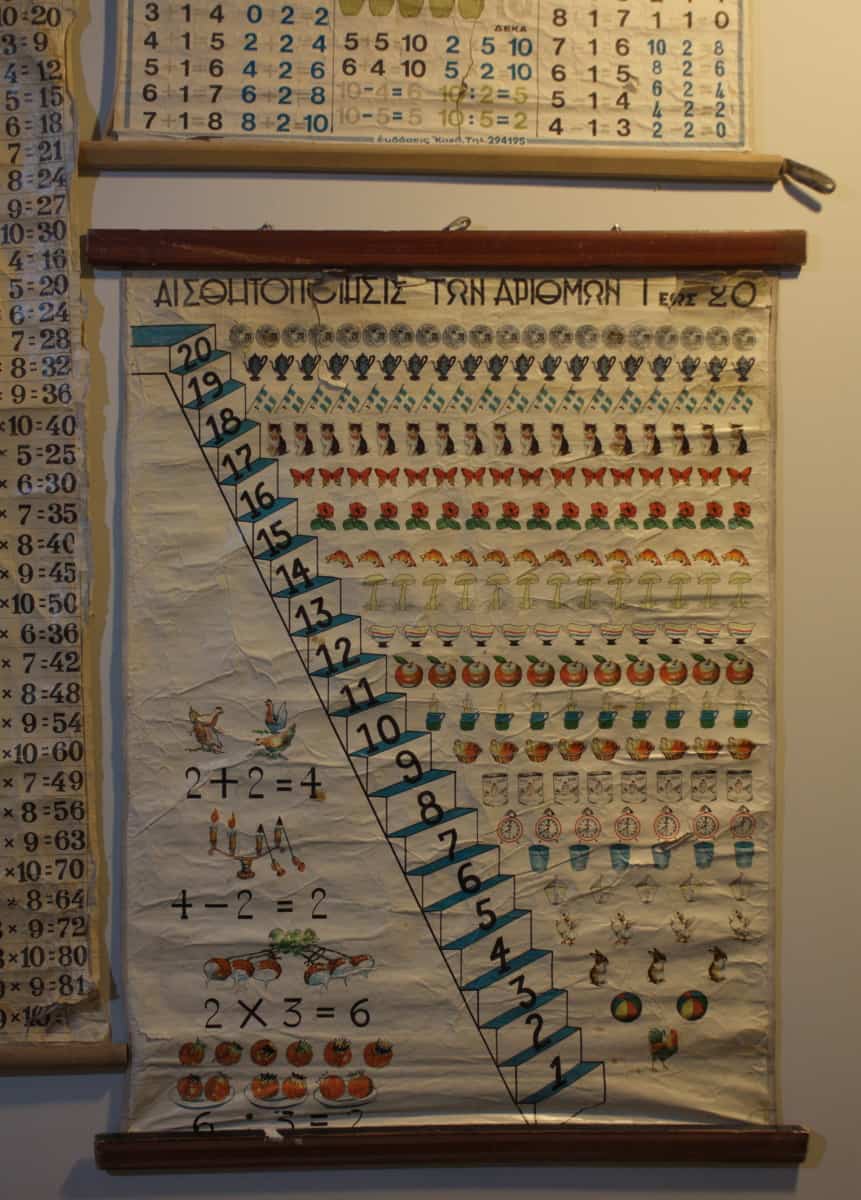 10=20
3=9
4=12
5=15
6=18
7=21
8=24
9=27
10=30
4=16
5=20
6=24
7=28
8=32
9=36
×10=40
× 5=25
× 6=30
× 7=35
× 8=40
× 9=45
×10=50
× 6=36
× 7=42
× 8=48
× 9=54
×10=60
× 7=49
× 8=56
× 9=63
×10=70
× 8=64
× 9=72
×10=80
× 9=81
3+1=4 0+2=2
4+1=5 2+2=4
5+1=6 4+2=6
6+1=7 6+2=8
7+1=8 8+2=10
ΔΕΚΑ
5 5 10 2 5 10
6 4 10 5 2 10
10-4=6 10:2=5
10-5=5 10:5=2
8-1=7 1 1 0
7-1=6 10-2=8
6-1=5 8-2=6
5-1=4 6-2=4
4-1=3 4-2=2
2-2=0
Τηλ. 294195
ΑΙΣΘΗΤΟΠΟΙΗΣΙΣ ΤΩΝ ΑΡΙΘΜΩΝ 1 ΕΩΣ 20
20
19
18
17
16
15
14
13
12
11
10
9
8
7
6
5
4
3
2
1
2+2=4
4-2=2
2×3=6
6:3=2